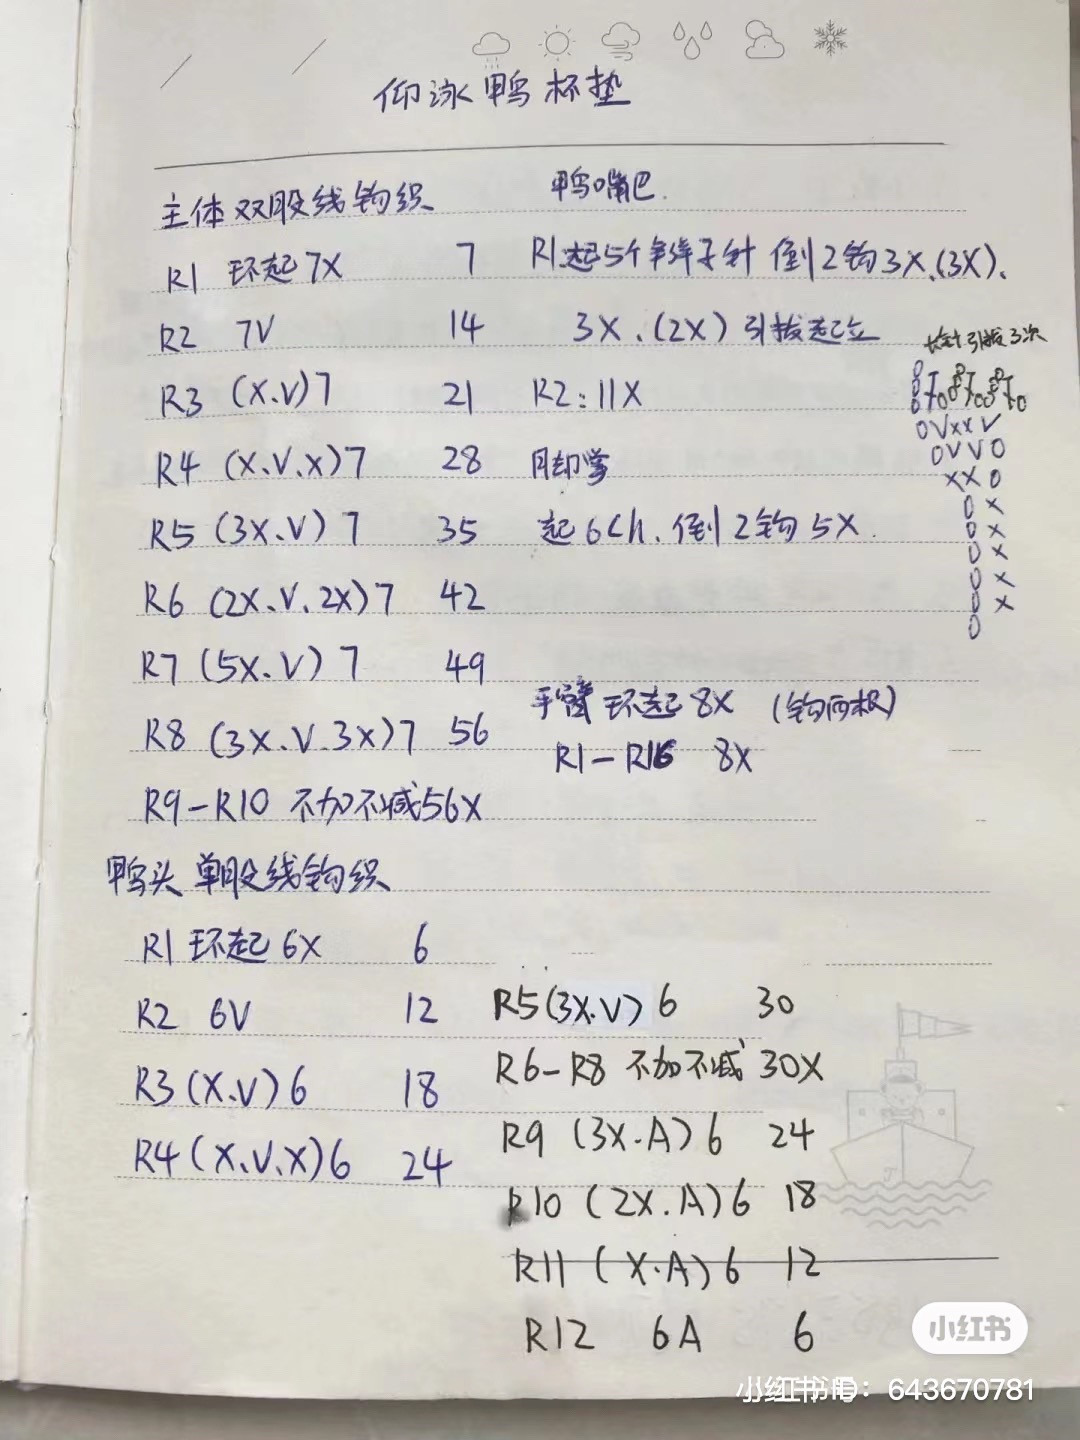 仰泳鸭杯垫
主体双股线钩织
R1 环起7X 7
R2 7V 14
R3 (X.V)7 21
R4 (X.V.X)7 28
R5 (3X.V)7 35
R6 (2X.V.2X)7 42
R7 (5X.V)7 49
R8 (3X.V.3X)7 56
R9-R10 不加不减56X
鸭头 单股线钩织
R1 环起6X 6
R2 6V 12
R3 (X.V)6 18
R4 (X.V.X)6 24
鸭嘴巴.
R1.起5个辫子针 倒2钩3X.(3X).
3X.(2X) 引拔起立
R2:11X
脚掌
起6Ch.倒2钩5X.
长针引拔3次
0VXXV
0VV0
XX0
0X
0X
0X
0X
0X
0
手臂 环起8X (钩两根)
R1-R16 8X
R5(3X.V)6 30
R6-R8 不加不减 30X
R9 (3X.A)6 24
R10 (2X.A)6 18
R11 (X.A)6 12
R12 6A 6
小红书
小红书号:643670781